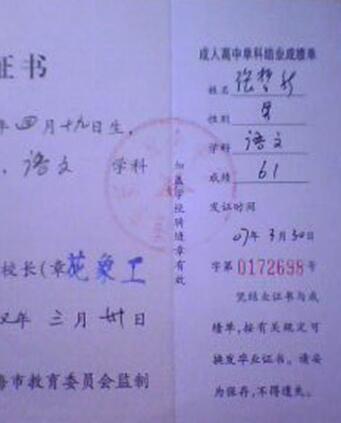 证书
年四月十九日生,
、语文 学科
校长(章
年 三 月 卅 日
海市教育委员会监制
加盖学校骑缝章有效
成人高中单科结业成绩单
姓名
性别 男
学科 语文
成绩 61
发证时间
07年3月30日
字第0172698号
凭结业证书与成
绩单,按有关规定可
换发毕业证书。请妥
为保存,不得遗失。